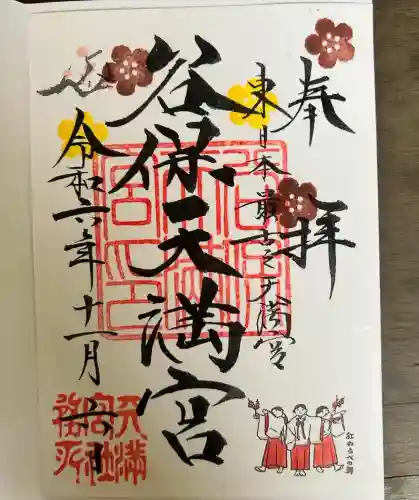 奉拝
東日本最古之天満宮
谷保天満宮
令和六年十一月
六日
天満宮社務所